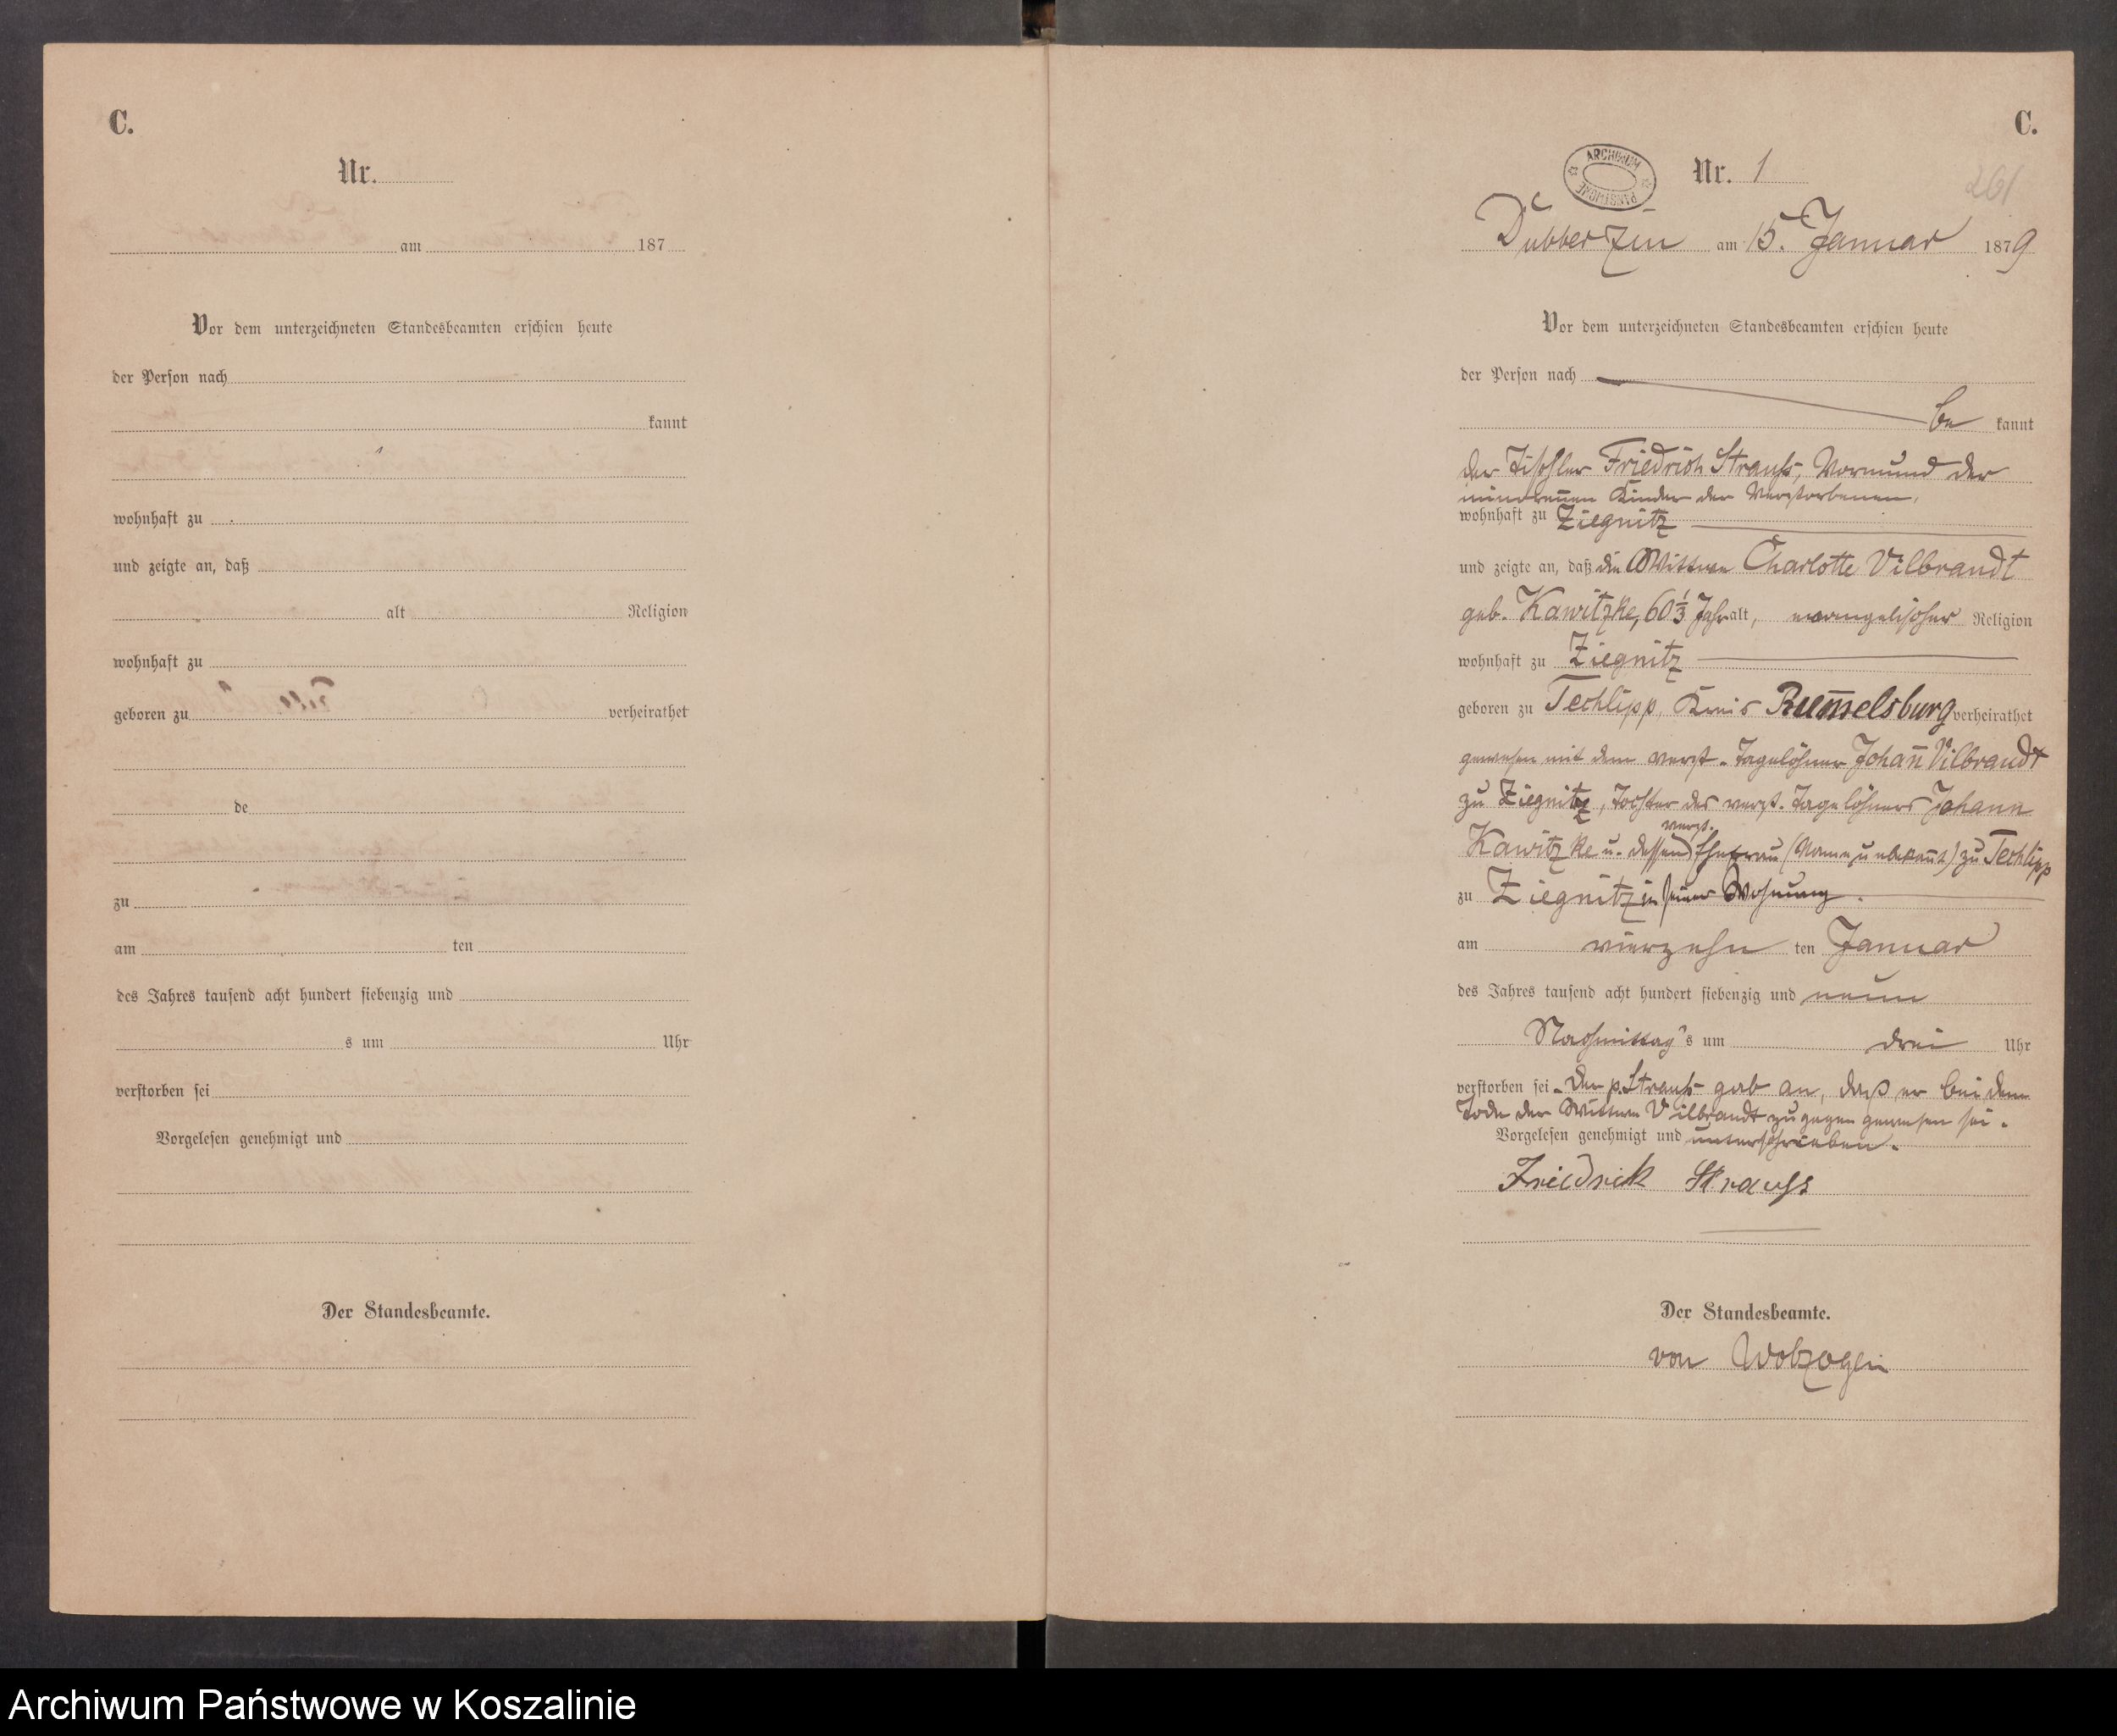 C.
Nr.
am 187
Vor dem unterzeichneten Standesbeamten erschien heute
der Person nach
kannt
wohnhaft zu
und zeigte an, daß
alt Religion
wohnhaft zu
geboren zu verheirathet
de
zu
am ten
des Jahres tausend acht hundert siebenzig und
s um Uhr
verstorben sei
Vorgelesen genehmigt und
Der Standesbeamte.
C.
ARCHIWUM PAŃSTWOWE
Nr. 1
261
Dubberzin am 15. Januar 1879
Vor dem unterzeichneten Standesbeamten erschien heute
der Person nach
be kannt
der Tischler Friedrich Strauß, Vormund der
minorenen Kinder der Verstorbenen,
wohnhaft zu Ziegnitz
und zeigte an, daß die Wittwe Charlotte Vilbrandt
geb. Kawitzke, 60 1/3 Jahr alt, evangelischer Religion
wohnhaft zu Ziegnitz
geboren zu Techlipp, Kreis Rum̅elsburg verheirathet
gewesen mit dem verst. Tagelöhner Johan̅ Vilbrandt
zu Ziegnitz, Tochter des verst. Tagelöhners Johann
verst.
Kawitzke u. dessen Ehefrau (Name unbekan̅t) zu Techlipp
zu Ziegnitz in seiner Wohnung.
am vierzehn ten Januar
des Jahres tausend acht hundert siebenzig und neun
Nachmittag's um drei Uhr
verstorben sei. Der p. Strauß gab an, daß er bei dem
Tode der Wittwe Vilbrandt zugegen gewesen sei.
Vorgelesen genehmigt und unterschrieben.
Friedrich Strauß
Der Standesbeamte.
von Wolzogen
Archiwum Państwowe w Koszalinie